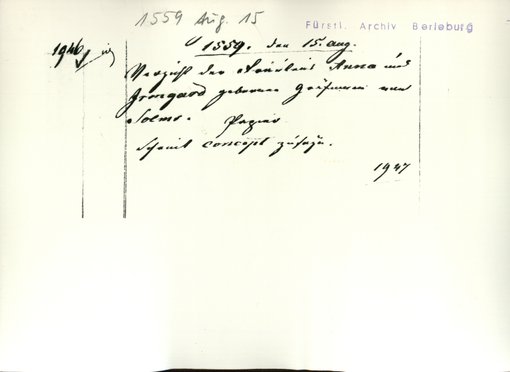 1559 Aug. 15
Fürstl. Archiv Berleburg
1946
1559. den 15. aug.
Verzicht der Fräulein Anna und
Irmgard geborenen Gräfinnen von
Solms. Papier
concept
1947